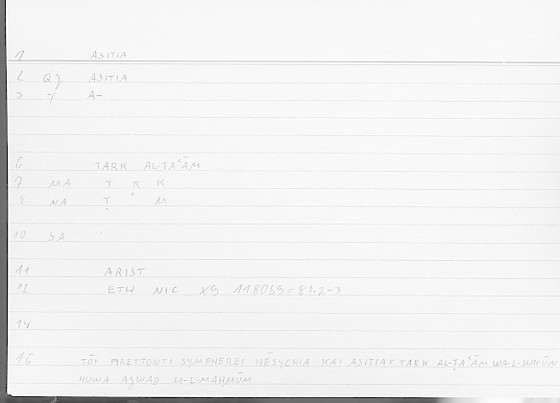 1 ASITIA
2 QZ ASITIA
3 Y A-
6 TARK AL-ṬAʿĀM
7 MA T R K
8 NA Ṭ ʿ M
10 SA :
11 ARIST
12 ETH NIC X9 1180b9 = 81.2-3
14
16 TŌI PYRETTONTI SYMPHEREI HĒSYCHIA KAI ASITIA = TARK AL-ṬAʿĀM WA-L-SUKŪN
HUWA AǦWAD LI-L-MAḤMŪM